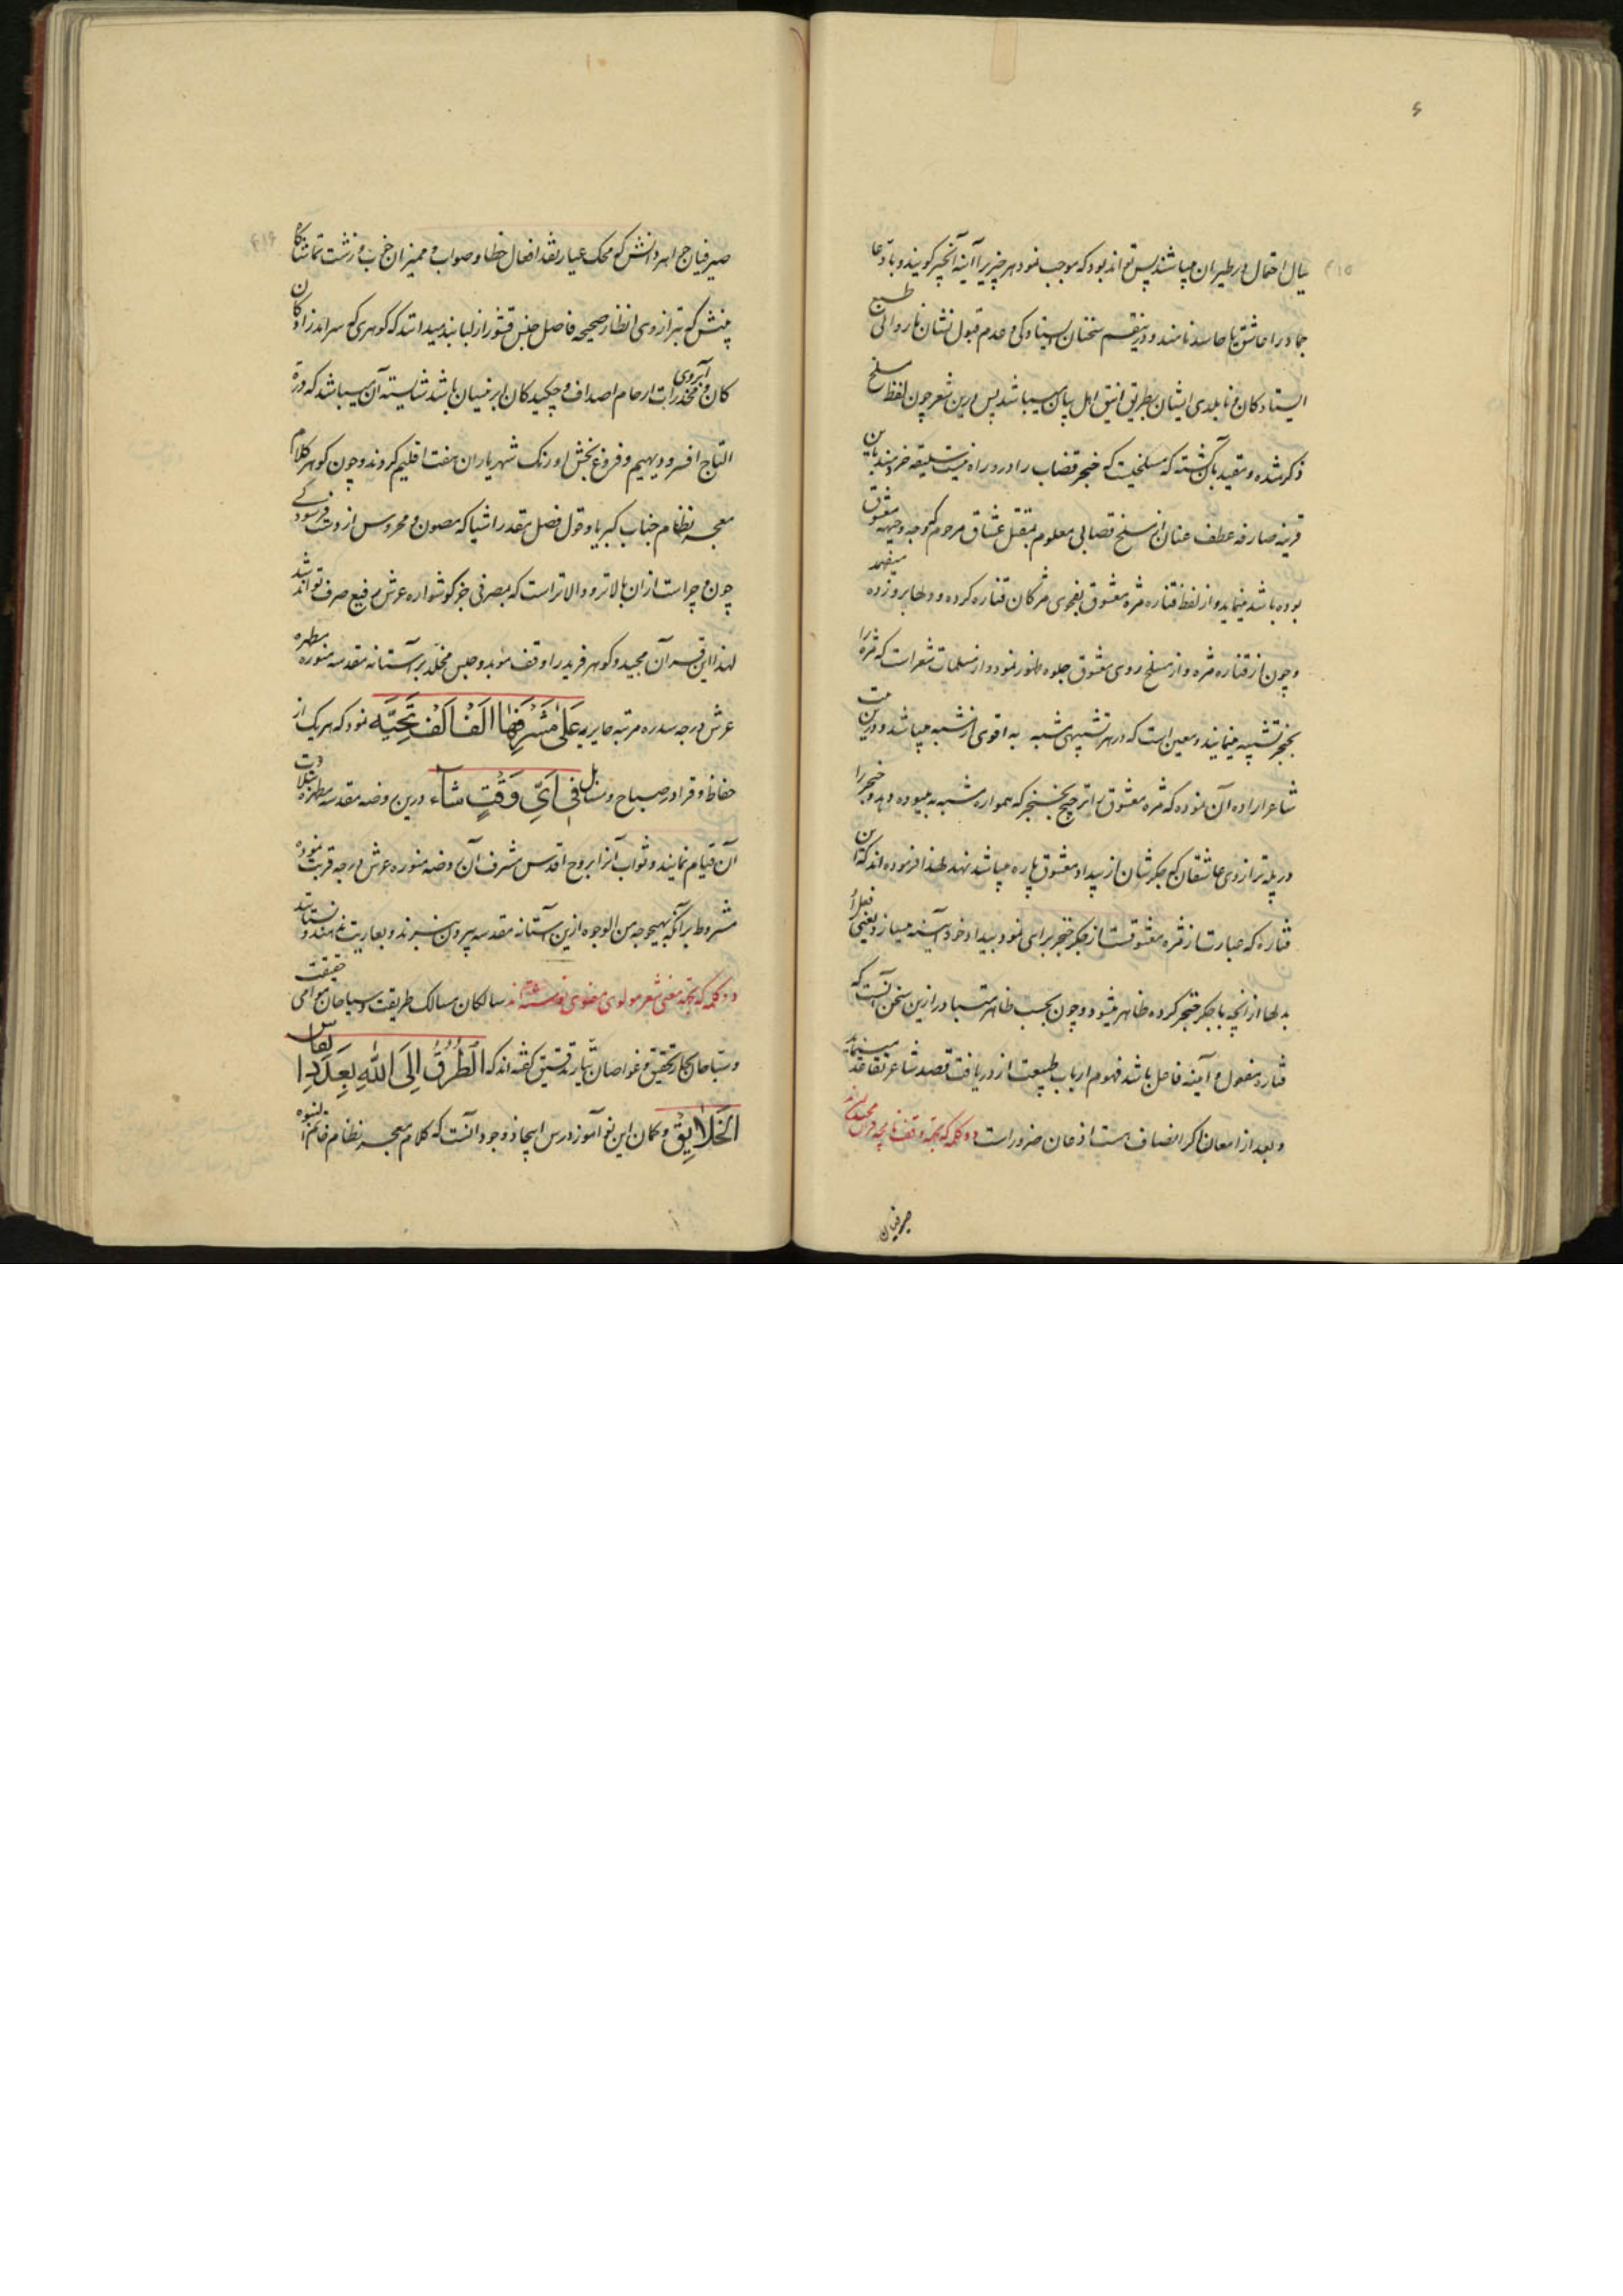 ۶
۴۱۵
بیال احتمال در طیران میباشد پس تواند بود که موجب نمود هر چیز را آینه آنچیز گویند و بادعا
جماد را عاشق یا حاسد نامند و درینقسم سخنان ایستادگی و عدم قبول نشان ناروائی طبع
ایستادگان و نابلدی ایشان بطریق انیق اهل بیان میباشد پس درین شعر چون لفظ مسلخ
ذکر شده و مقید بآن گشته که مسلخیست که خنجر قصاب را درو راه نیست سلیقه خردمند باین
قرینه صارفه عطف عنان از مسلخ قصابی معلوم بمقتل عشاق مرحوم که وجه وجیه معشوق
بوده باشد مینماید و از لفظ قناره مژه معشوق بفحوی مژگان قناره کرده و دلها برو زده میفهمد
و چون از قناره مژه و از مسلخ روی معشوق جلوه ظهور نمود و از مسلمات شعراست که مژه را
بخنجر تشبیه مینمایند و معین است که در هر تشبیهی مشبه به اقوی از مشبه میباشد و درین بیت
شاعر اراده آن نموده که مژه معشوق را ترجیح بخنجر که همواره مشبه به میبوده دهد و خنجر را
در پله ترازوی عاشقان که جگرشان از بیداد معشوق پاره میباشد نهد لهذا فرموده اند که این
قناره که عبارت از مژه معشوقست از جگر خنجر برای نمود بیداد خود آینه میسازد یعنی فعل او
بدلها از آنچه با جگر خنجر کرده ظاهر میشود و چون بحسب ظاهر متبادر ازین سخن آنست که
قناره مفعول و آینه فاعل باشد فهوم ارباب طبیعت از دریافت قصد شاعر تقاعد مینماید
و بعد از امعان اگر انصاف هست اذعان ضرور است دو کلمه که بجهة وقفنامچه قرآن مجید نوشته اند
صیرفیان
۴۱۶
صیرفیان جواهر دانش که محک عیار نقد افعال خطا و صواب و ممیزان خوب و زشت تماشاگاه
بینش که بترازوی انظار صحیحه فاصل جنس قشور از لبابند میدانند که گوهری که سرآمد زادگان
کان و مخدرات ارحام اصداف و چکیدگان ابر نیسان باشد شایسته آن میباشد که درة
آبروی
التاج افسر و دیهیم و فروغ بخش اورنک شهریاران هفت اقلیم گردند و چون گوهر کلام
معجز نظام جناب کبریا و قول فصل مقدر اشیا که مصون و محروس از دست فرسودگی
چون و چراست از آن بالاتر و والاتر است که بمصرفی جز گوشواره عرش رفیع صرف تواند شد
لهذا این قرآن مجید و گوهر فرید را وقف مؤبد و حبس مخلد بر آستانه مقدسه منوره مطهره
عرش درجه سدره مرتبه حایریه عَلَى مُشَرِّفِهَا اَلْفُ اَلْفِ تَحِيَّه نمود که هر یک از
حفاظ و قرا در صباح و مسا بل فِى اَىِّ وَقْتٍ شَآءَ درین روضه مقدسه مطهره بتلاوت
آن قیام نمایند و ثواب آنرا بروح اقدس مشرف آن روضه منوره عرش درجه قربت نموده
مشروط بر آنکه بهیچوجه من الوجوه ازین آستانه مقدسه بیرون نبرند و بعاریت ندهند و نستانند
دو کلمه که بجهة معنی شعر مولوی معنوی نوشته اند سالکان مسالک طریقت و سیاحان موامی حقیقت
و سباحان بحار تحقیق و غواصان تیار تدقیق گفته اند که اَلطُّرُقُ اِلَى اللّٰهِ بِعَدَدِ اَنْفَاسِ
الْخَلَايِقْ و گمان این نوآموز درس ایجاد و وجود آنست که کلام معجز نظام خاتم النبوه